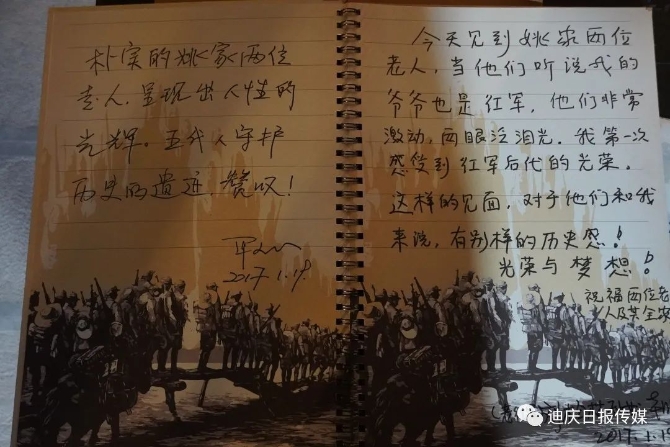 朴实的姚家两位
老人,呈现出人性的
光辉。五代人守护
历史的遗迹,赞叹!
2017.1.19.
今天见到姚家两位
老人,当他们听说我的
爷爷也是红军,他们非常
激动,两眼泛泪光.我第一次
感受到红军后代的光荣.
这样的见面,对于他们和我
来说,有别样的历史感!
光荣与梦想!
祝福两位老
人及其全家
2017.1.1
迪庆日报传媒